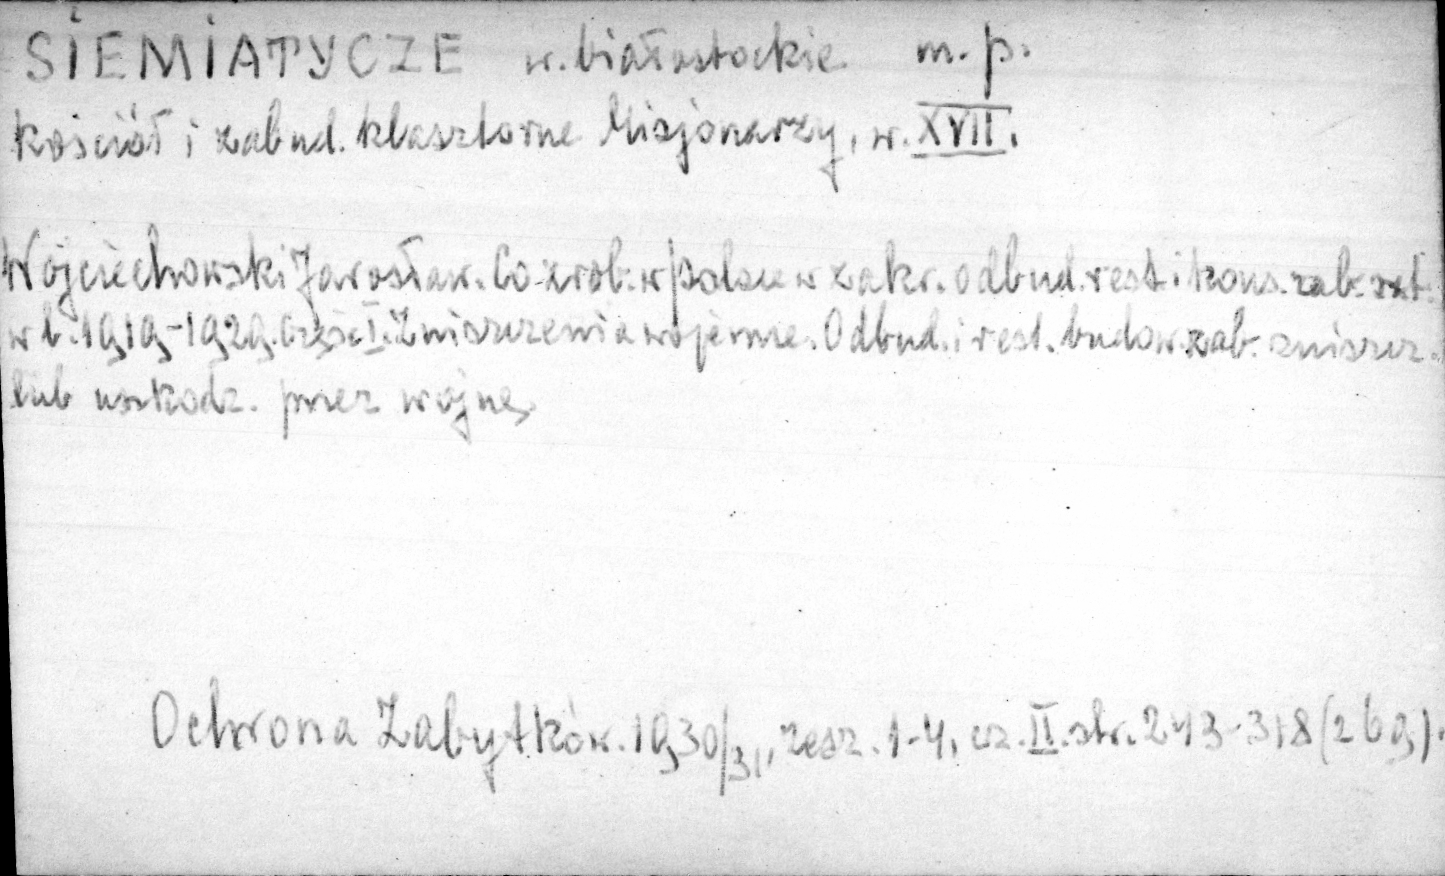 SIEMIATYCZE w. białostockie m. p.
Kościół i zabud. klasztorne Misjonarzy, w. XVII.
Wojciechowski Jarosław. Co zrob. w Polsce w zakr. odbud. rest. i kons. zab. szt.
w l. 1919-1929. Część I. Zniszczenia wojenne. Odbud. i rest. budow. zab. zniszcz.
lub uszkodz. przez wojnę.
Ochrona Zabytków. 1930/31, zesz. 1-4, cz. II. str. 243-318 (269).